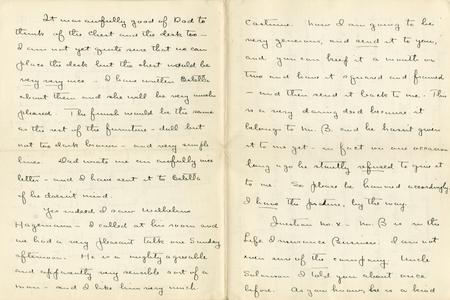 It was awfully good of Dad to
think of the chest and the desk too -
I am not yet quite sure that we can
place the desk but the chest would be
very very nice - I have written
about them and she will be very much
pleased. The finish would be the same
as the rest of the furniture - dull but
not too dark brown - and very simple
lines. Dad wrote me an awfully nice
letter - and I have sent it to
if he doesn't mind.
Yes indeed I saw Wilhelmina
Hagemann - I called at his room and
we had a very pleasant talk one Sunday
afternoon. He is a mighty agreeable
and apparently very sensible sort of a
man - and I like him very much
Costume. Now I am going to be
very generous, and send it to you,
and you can keep it a month or
two and have it squared and framed
- and then send it back to me. This
is a very daring deed because it
belongs to Mr. B. and he hasn't given
it to me yet - in fact on one occasion
long ago he strictly refused to give it
to me. So please be warned accordingly
I have the picture, by the way.
Question no. x - Mr. B is in the
Life Insurance Business. I am not
even sure of the company. Uncle
Solomon I told you about once
before. As you know, he is a kind